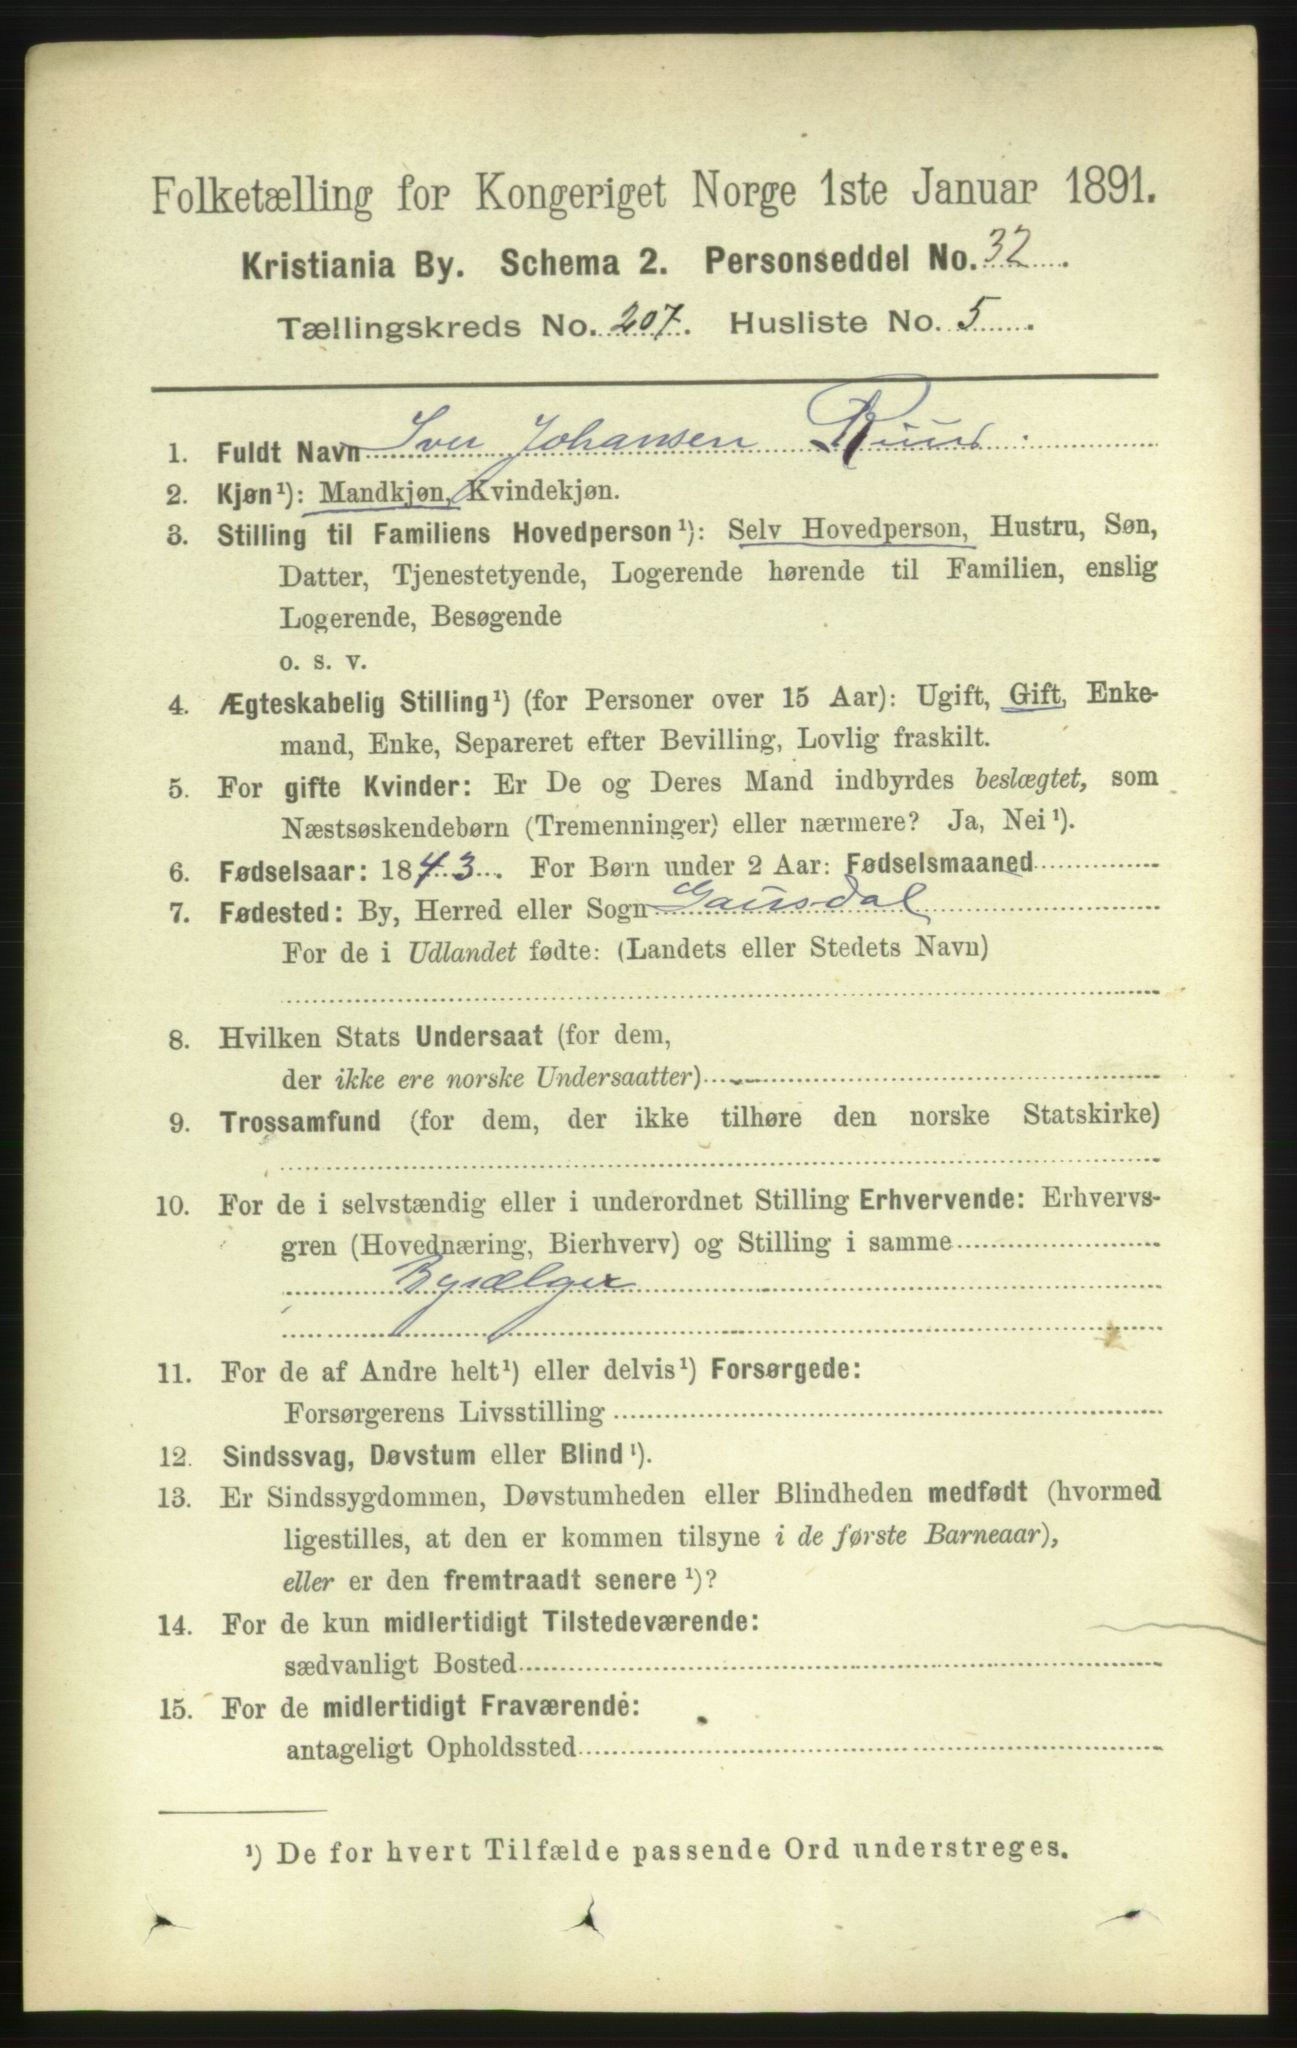 Folketælling for Kongeriget Norge 1ste Januar 1891.
Kristiania By. Schema 2. Personseddel No. 32.
Tællingskreds No. 207. Husliste No. 5.
1. Fuldt Navn Iver Johansen Ruud
2. Kjøn¹): Mandkjøn, Kvindekjøn.
3. Stilling til Familiens Hovedperson¹): Selv Hovedperson, Hustru, Søn,
Datter, Tjenestetyende, Logerende hørende til Familien, enslig
Logerende, Besøgende
o. s. v.
4. Ægteskabelig Stilling¹) (for Personer over 15 Aar): Ugift, Gift, Enke-
mand, Enke, Separeret efter Bevilling, Lovlig fraskilt.
5. For gifte Kvinder: Er De og Deres Mand indbyrdes beslægtet, som
Næstsøskendebørn (Tremenninger) eller nærmere? Ja, Nei¹).
6. Fødselsaar: 1843. For Børn under 2 Aar: Fødselsmaaned
7. Fødested: By, Herred eller Sogn Gausdal
For de i Udlandet fødte: (Landets eller Stedets Navn)
8. Hvilken Stats Undersaat (for dem,
der ikke ere norske Undersaatter)
9. Trossamfund (for dem, der ikke tilhøre den norske Statskirke)
10. For de i selvstændig eller i underordnet Stilling Erhvervende: Erhvervs-
gren (Hovednæring, Bierhverv) og Stilling i samme
Bysælger
11. For de af Andre helt¹) eller delvis¹) Forsørgede:
Forsørgerens Livsstilling
12. Sindssvag, Døvstum eller Blind¹).
13. Er Sindssygdommen, Døvstumheden eller Blindheden medfødt (hvormed
ligestilles, at den er kommen tilsyne i de første Barneaar),
eller er den fremtraadt senere¹)?
14. For de kun midlertidigt Tilstedeværende:
sædvanligt Bosted
15. For de midlertidigt Fraværende:
antageligt Opholdssted
¹) De for hvert Tilfælde passende Ord understreges.